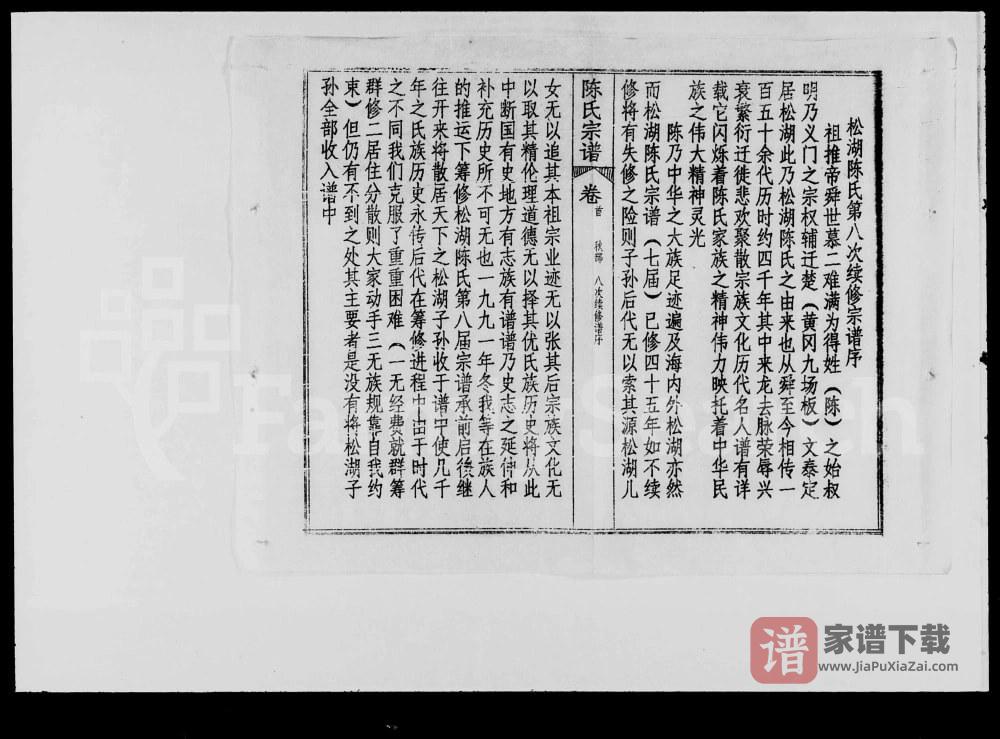 松湖陈氏第八次续修宗谱序
祖推帝舜世慕二难满为得姓（陈）之始叔
明乃义门之宗权辅迁楚（黄冈九场板）文泰定
居松湖此乃松湖陈氏之由来也从舜至今相传一
百五十余代历时约四千年其中来龙去脉荣辱兴
衰繁衍迁徒悲欢聚散宗族文化历代名人谱有详
载它闪烁着陈氏家族之精神伟力映托着中华民
族之伟大精神灵光
陈乃中华之大族足迹遍及海内外松湖亦然
而松湖陈氏宗谱（七届）已修四十五年如不续
修将有失修之险则子孙后代无以索其源松湖儿
陈氏宗谱 卷首 秩部 八次续修谱序
女无以追其本祖宗业迹无以张其后宗族文化无
以取其精伦理道德无以择其优氏族历史将从此
中断国有史地方有志族有谱谱乃史志之延伸和
补充历史所不可无也一九九一年冬我等在族人
的推运下筹修松湖陈氏第八届宗谱承前启後继
往开来将散居天下之松湖子孙收于谱中使几千
年之氏族历史永传后代在筹修进程中由于时代
之不同我们克服了重重困难（一无经费就群筹
群修二居住分散则大家动手三无族规靠自我约
束）但仍有不到之处其主要者是没有将松湖子
孙全部收入谱中
FamilySearch
谱
家谱下载
www.JiaPuXiaZai.com